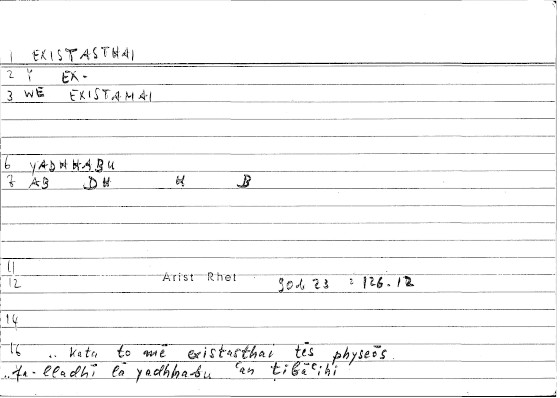 1 EXISTASTHAI
2 Y EX-
3 WE EXISTAMAI
6 YADHHABU
7 AB DH H B
11
12 Arist Rhet 90b23 : 126.12
14
16 .. kata to mē existasthai tēs physeōs.
.. fa-lladhī lā yadhhabu ʿan ṭibāʿihi